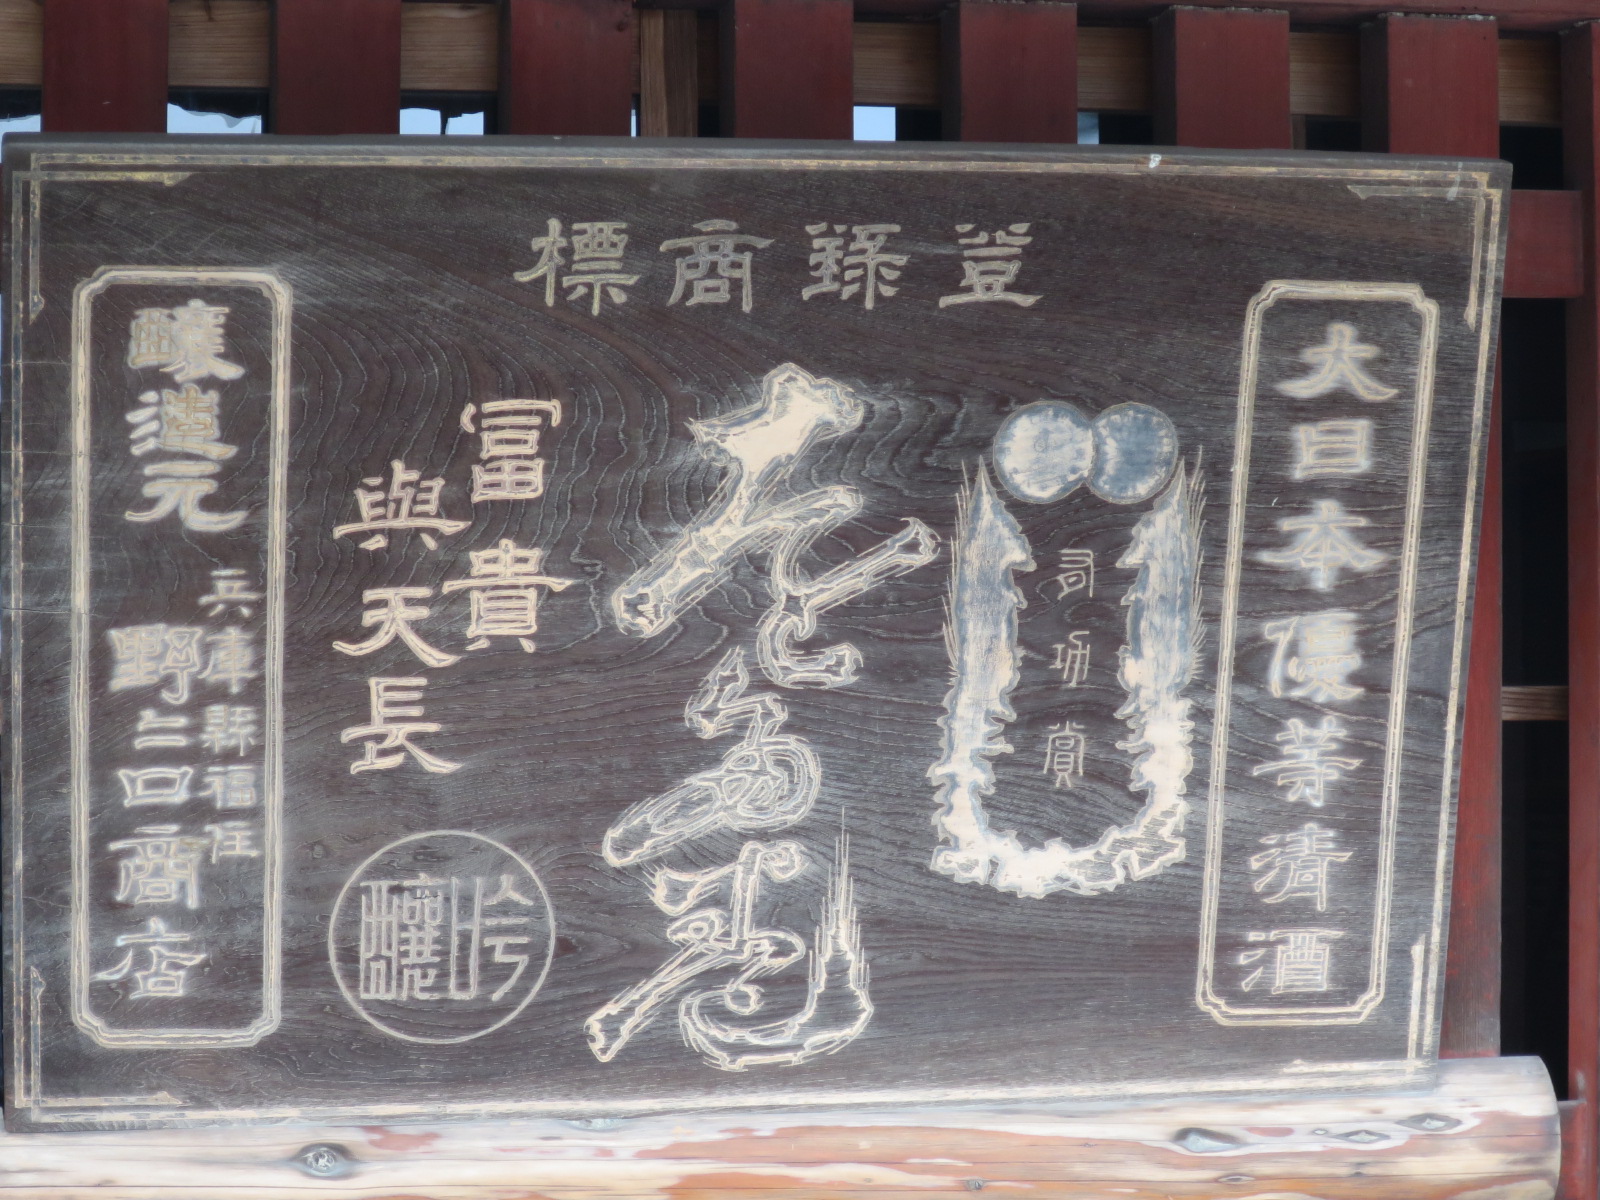 登錄商標
大日本優等清酒
有功賞
富貴
與天長
吟釀
釀造元
兵庫縣福住
野々口商店